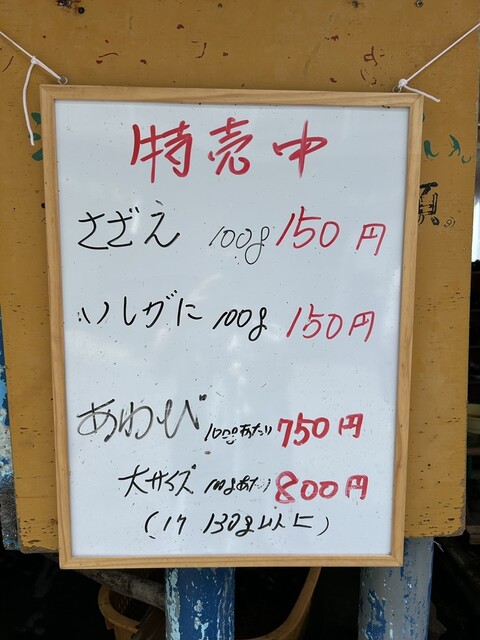 特売中
さざえ 100g 150円
いしがに 100g 150円
あわび 100gあたり 750円
大サイズ 100gあたり 800円
(1ケ 130g以上)